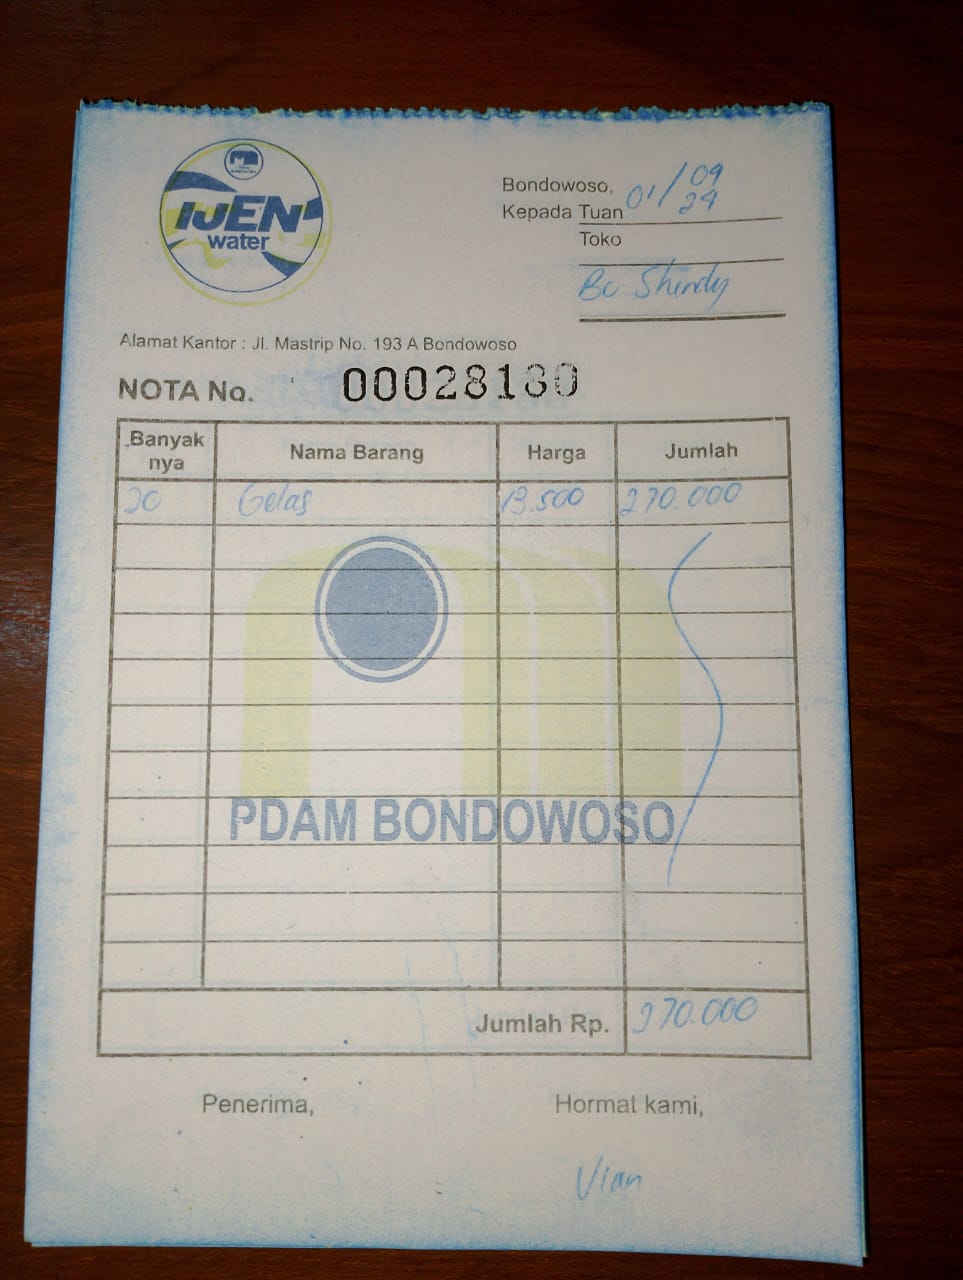 IJEN
water
Bondowoso, 01/09
24
Kepada Tuan
Toko
Bu Shindy
Alamat Kantor : Jl. Mastrip No. 193 A Bondowoso
NOTA No. 00028130
Banyak nya Nama Barang Harga Jumlah
20 Gelas 13.500 270.000
PDAM BONDOWOSO
Jumlah Rp. 270.000
Penerima, Hormat kami,
Vian